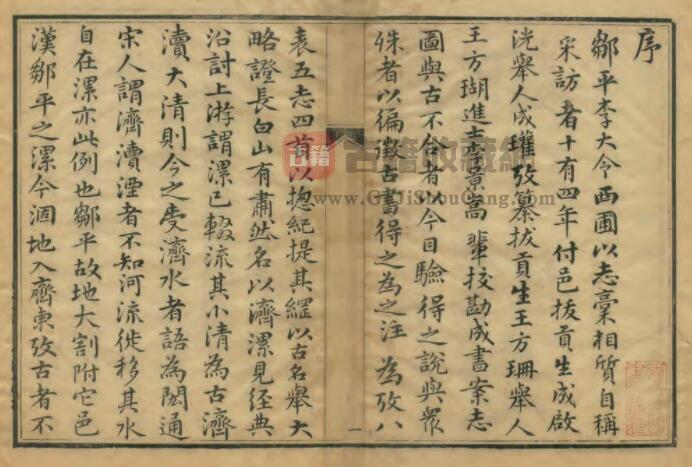 序
鄒平李大令西圃以志稾相質自稱
采訪者十有四年付邑拔貢生成啟
洸舉人成瓘攷纂拔貢生王方珊舉人
王方瑚進士李景嵩輩挍勘成書案志
圖與古不合者以今目驗得之說與眾
殊者以徧徵古書得之為之注 為攷八
表五志四首以揔紀提其綱以古名舉大
略證長白山有肅然名以濟漯見經典
沿討上游謂漯已輟流其小清為古濟
瀆大清則今之受濟水者語為閎通
宋人謂濟瀆湮者不知河流徙移其水
自在漯亦此例也鄒平故地大割附它邑
漢鄒平之漯今涸地入齊東攷古者不
一
古籍
古籍收藏網
www.GuJiShouCang.com